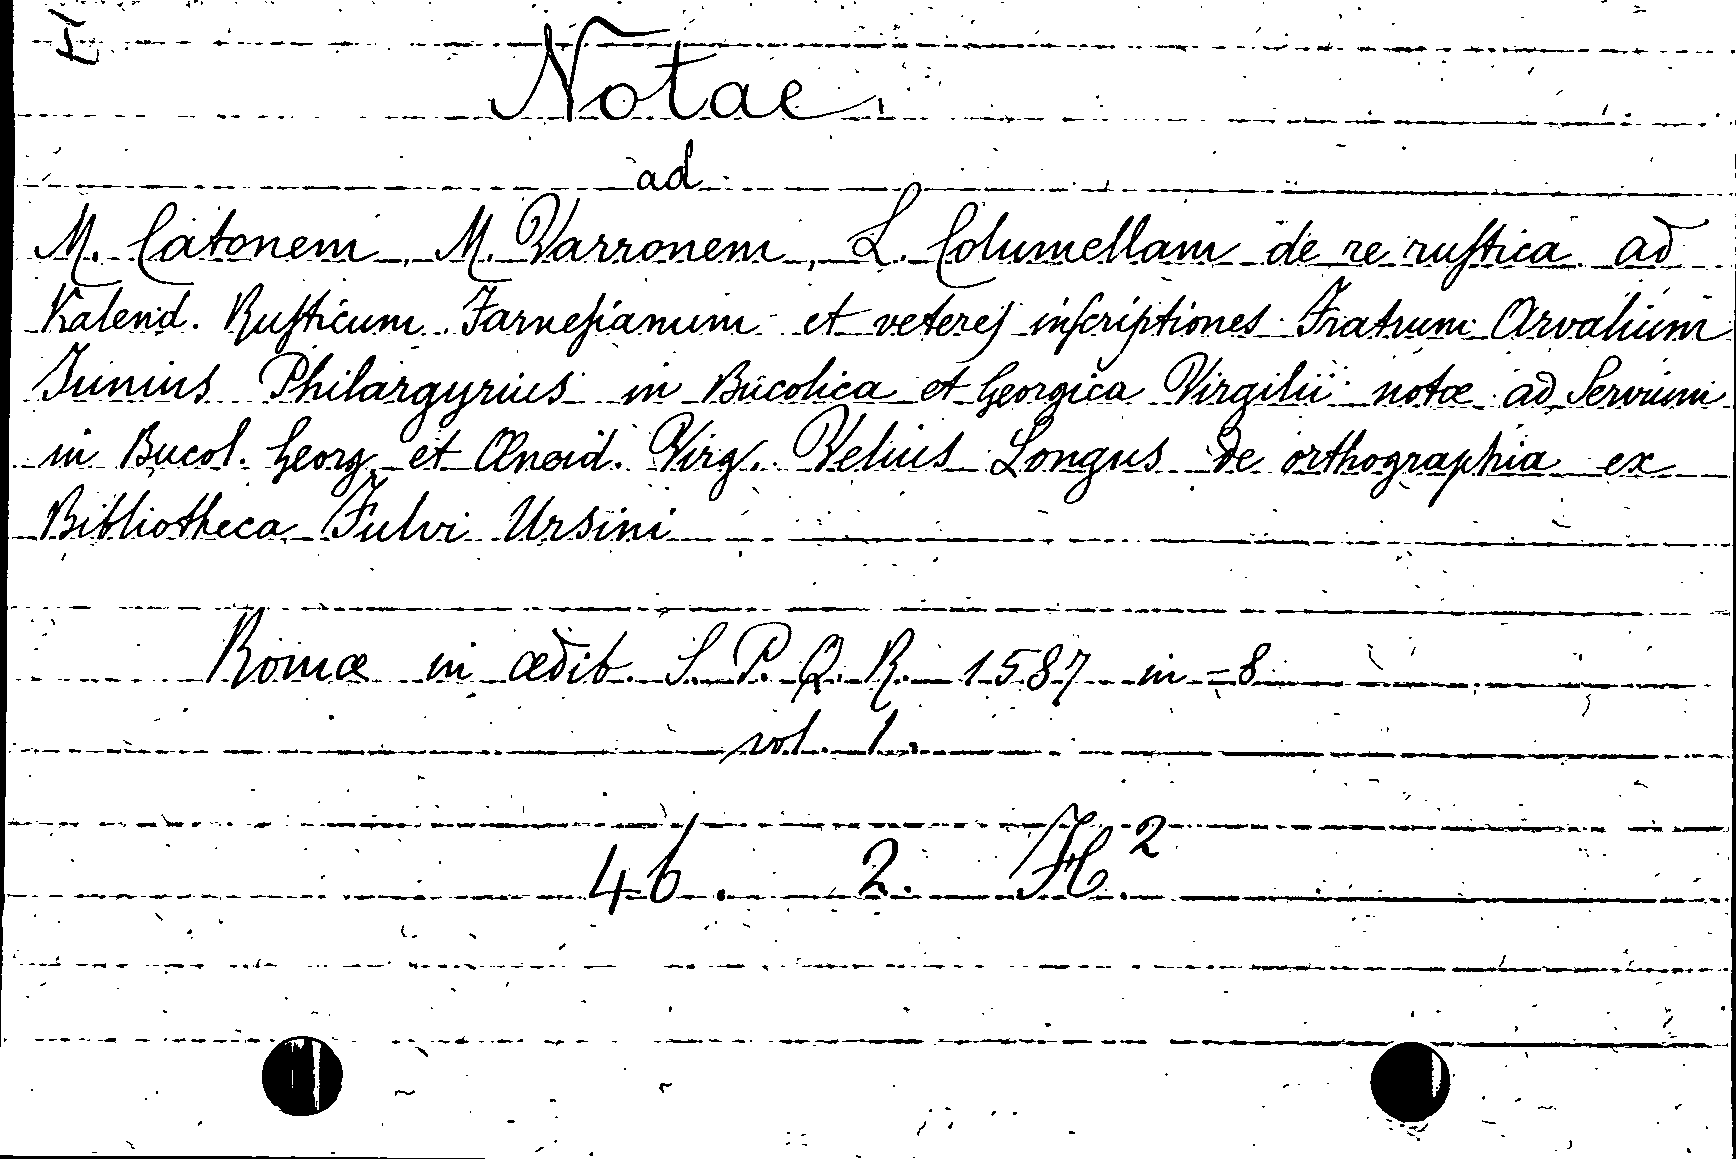 Notae
ad
M. Catonem, M. Varronem, L. Columellam de re ruſtica ad
Kalend. Ruſticum Farneſianum et veteres inſcriptiones Fratrum Arvalium
Junius Philargyrius in Bucolica et Georgica Virgilii notæ ad Servium
in Bucol. Georg. et Œneid. Virg. Velius Longus de orthographia ex
Bibliotheca Fulvi Ursini
Romæ in ædib. S. P. Q. R. 1587 in=8
vol. 1.
46. 2. H.²